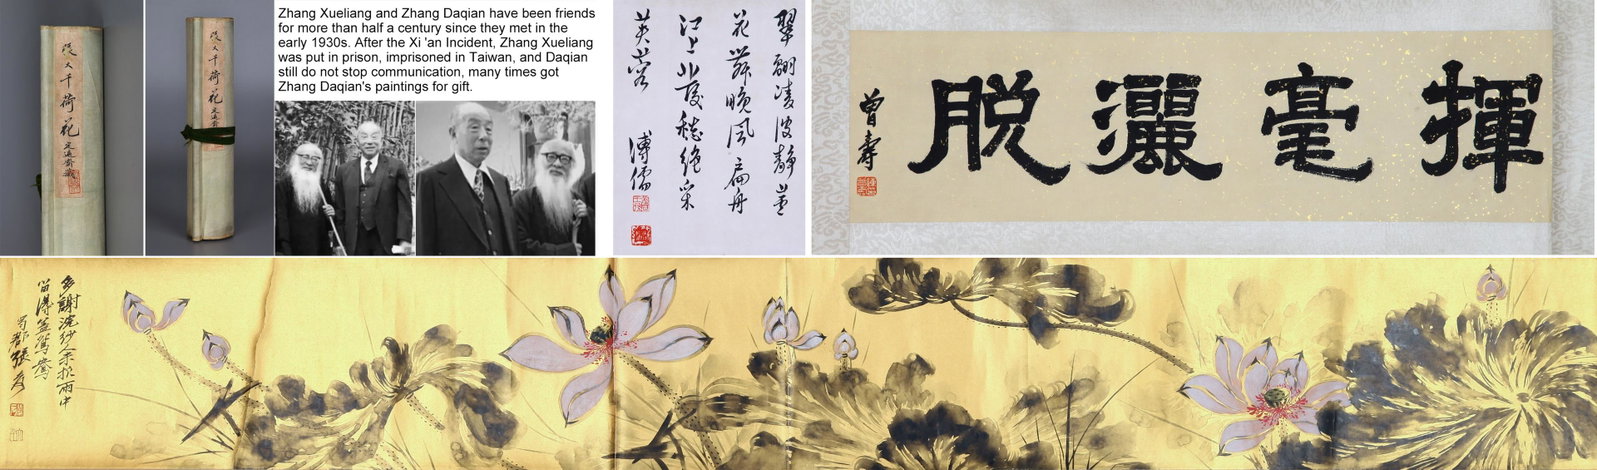 張大千荷花 定遠齋藏
張大千荷花 定遠齋藏
Zhang Xueliang and Zhang Daqian have been friends
for more than half a century since they met in the
early 1930s. After the Xi 'an Incident, Zhang Xueliang
was put in prison, imprisoned in Taiwan, and Daqian
still do not stop communication, many times got
Zhang Daqian's paintings for gift.
翠翮凌波靜並
花舞晚風扁舟
江上度愁絕采
芙蓉
溥儒
揮毫灑脫
曾壽
多謝浣紗人未折雨中
留得蓋鴛鴦
蜀郡張爰